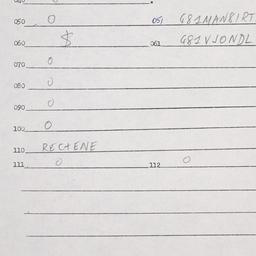 050 0 051 G81MAN8IRT
060 $ 061 G81VJONDL
070 0
080 0
090 0
100 0
110 RECHENE
111 0 112 0